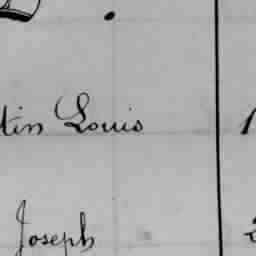 tin Louis
Joseph